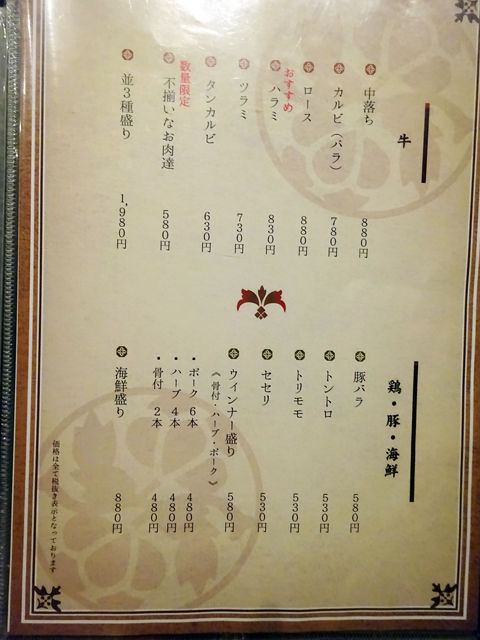 牛
中落ち 880円
カルビ(バラ) 780円
ロース 880円
おすすめ
ハラミ 830円
ツラミ 730円
タンカルビ 630円
数量限定
不揃いなお肉達 580円
並3種盛り 1,980円
鶏・豚・海鮮
豚バラ 580円
トントロ 530円
トリモモ 530円
セセリ 530円
ウィンナー盛り 580円
《骨付・ハーブ・ポーク》
・ポーク 6本 480円
・ハーブ 4本 480円
・骨付 2本 480円
海鮮盛り 880円
価格は全て税抜き表示となっております